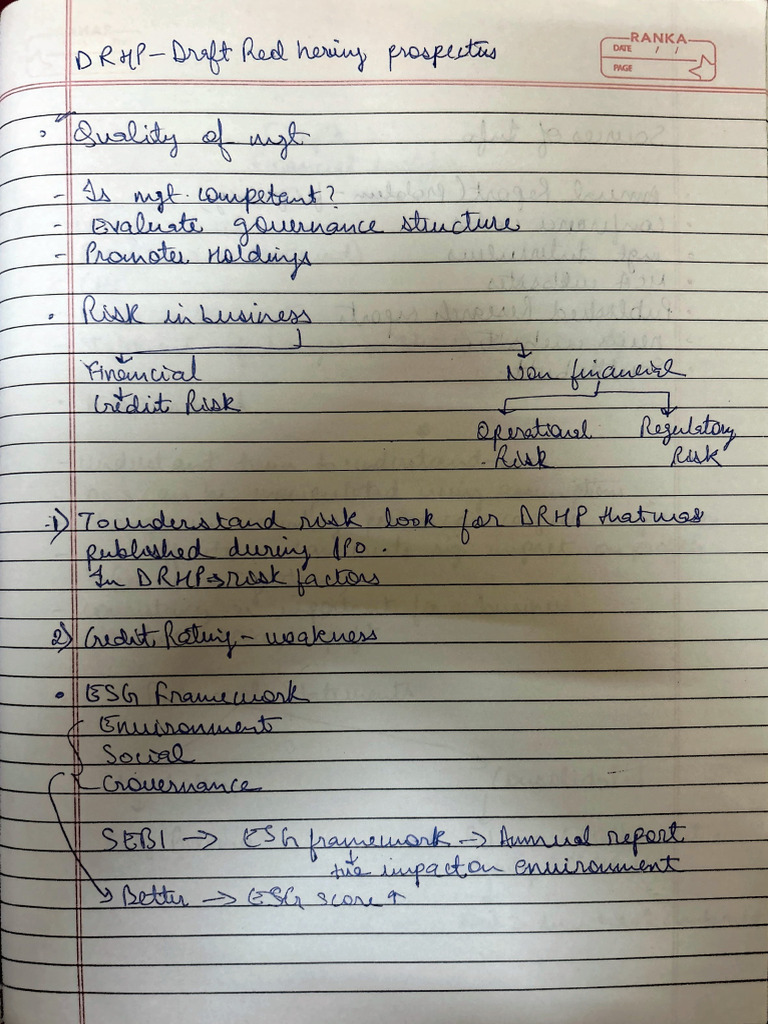 DRHP – Draft Red hering prospectus
RANKA
DATE / /
PAGE
• Quality of mgt
- Is mgt. competant?
- Evaluate governance structure
- Promoter Holdings
• Risk in business
Financial Non financial
Credit Risk
Operational Regulatory
Risk Risk
1) To understand risk look for DRHP that was
published during IPO.
In DRHP → risk factors
2) Credit Rating – weakness
• ESG Framework
Environment
Social
Governance
SEBI → ESG framework → Annual report
+ve impact on environment
→ Better → ESG score ↑